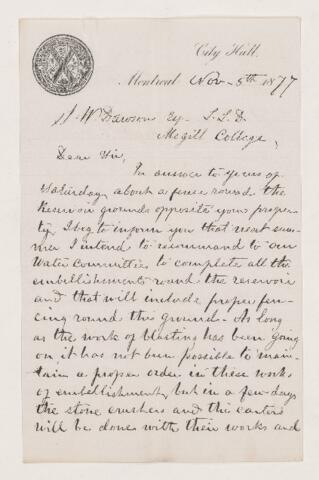 City Hall.
Montreal Nov. 5th 1877
J. W. Dawson Esq. L.L.D.
McGill College,
Dear Sir,
In answer to yours of
Saturday about a fence round the
Reservoir grounds opposite your proper-
ty, I beg to inform you that next sum-
mer I intend to recommand to our
Water Committee to complete all the
embellishments round the reservoir
and that will include proper fen-
cing round the grounds. As long
as the work of blasting has been going
on it has not been possible to main-
tain a proper order in these works
of embellishment, but in a few days
the stone crushers and the carters
will be done with their works and